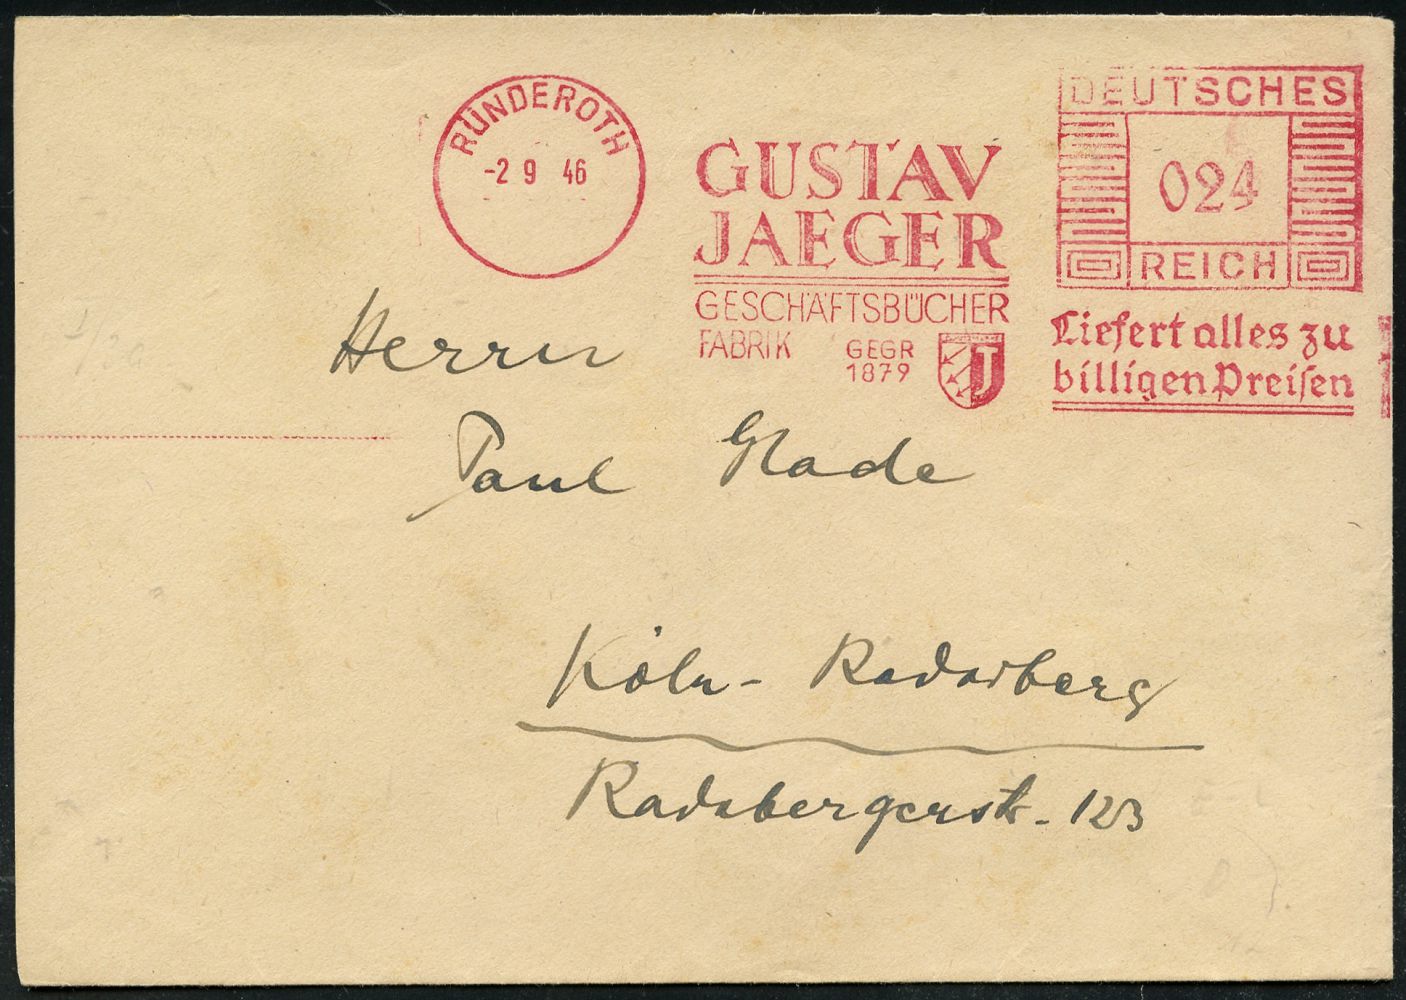 RÜNDEROTH
-2 9 46
GUSTAV
JAEGER
GESCHÄFTSBÜCHER
FABRIK GEGR
1879
J
DEUTSCHES
024
REICH
Liefert alles zu
billigen Preisen
Herrn
Paul Glade
Köln- Radarberg
Radabergerstr. 123